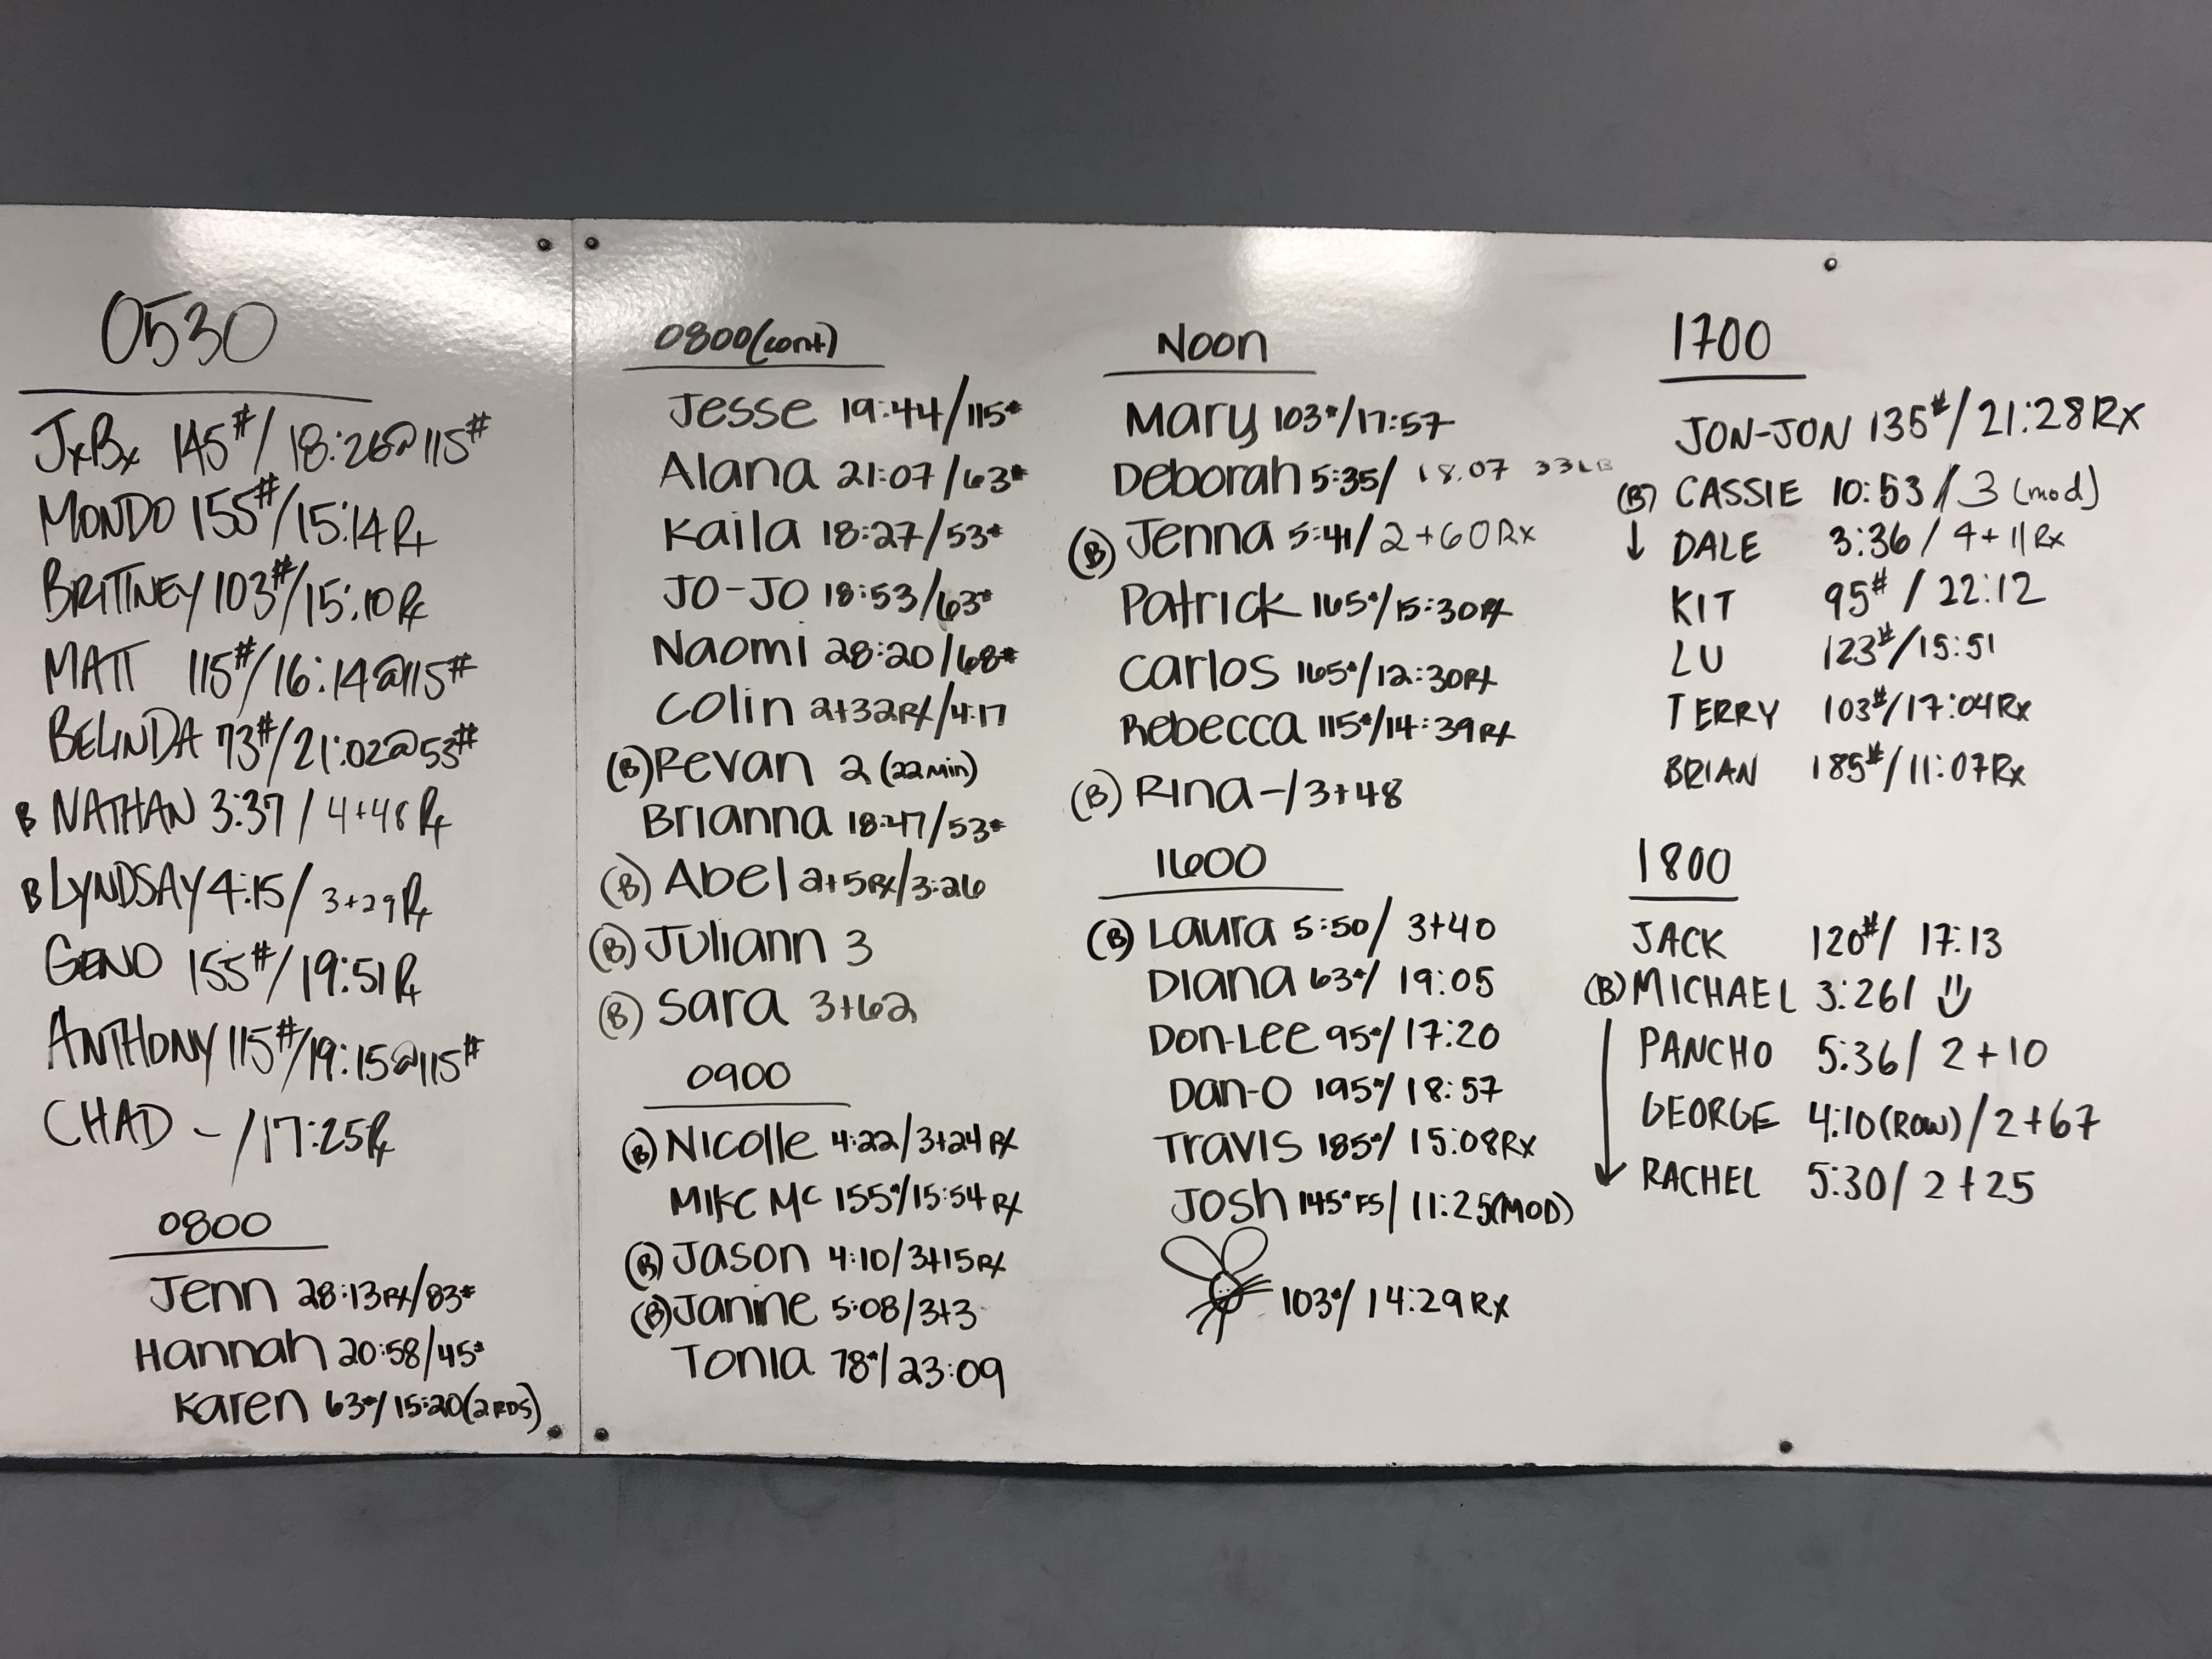 0530
JxBx 145#/18:26@115#
MONDO 155#/15:14Rx
BRITTNEY 103#/15:10Rx
MATT 115#/16:14@115#
BELINDA 73#/21:02@53#
B NATHAN 3:37/4+48Rx
B LYNDSAY 4:15/3+29Rx
GENO 155#/19:51Rx
ANTHONY 115#/19:15@115#
CHAD -/17:25Rx
0800
Jenn 28:13Rx/83#
Hannah 20:58/45#
Karen 63#/15:20(2RDS)
0800(cont)
Jesse 19:44/115#
Alana 21:07/63#
Kaila 18:27/53#
JO-JO 18:53/63#
Naomi 28:20/68#
Colin 2+32Rx/4:17
(B) Revan 2 (22min)
Brianna 18:47/53#
(B) Abel 2+5Rx/3:26
(B) Juliann 3
(B) Sara 3+62
0900
(B) Nicolle 4:22/3+24Rx
MIKE MC 155#/15:54Rx
(B) Jason 4:10/3+15Rx
(B) Janine 5:08/3+3
TONIA 78#/23:09
NOON
Mary 103#/17:57
Deborah 5:35/18.07 33LB
(B) Jenna 5:41/2+60Rx
Patrick 165#/15:30Rx
Carlos 165#/12:30Rx
Rebecca 115#/14:39Rx
(B) Rina -/3+48
1600
(B) Laura 5:50/3+40
Diana 63#/19:05
Don-Lee 95#/17:20
Dan-O 195#/18:57
Travis 185#/15:08Rx
Josh 145#FS/11:25(MOD)
103#/14:29Rx
1700
JON-JON 135#/21:28Rx
(B) CASSIE 10:53/3 (mod)
↓ DALE 3:36/4+11Rx
KIT 95#/22:12
LU 123#/15:51
TERRY 103#/17:04Rx
BRIAN 185#/11:07Rx
1800
JACK 120#/17:13
(B) MICHAEL 3:26/
PANCHO 5:36/2+10
GEORGE 4:10(ROW)/2+67
RACHEL 5:30/2+25